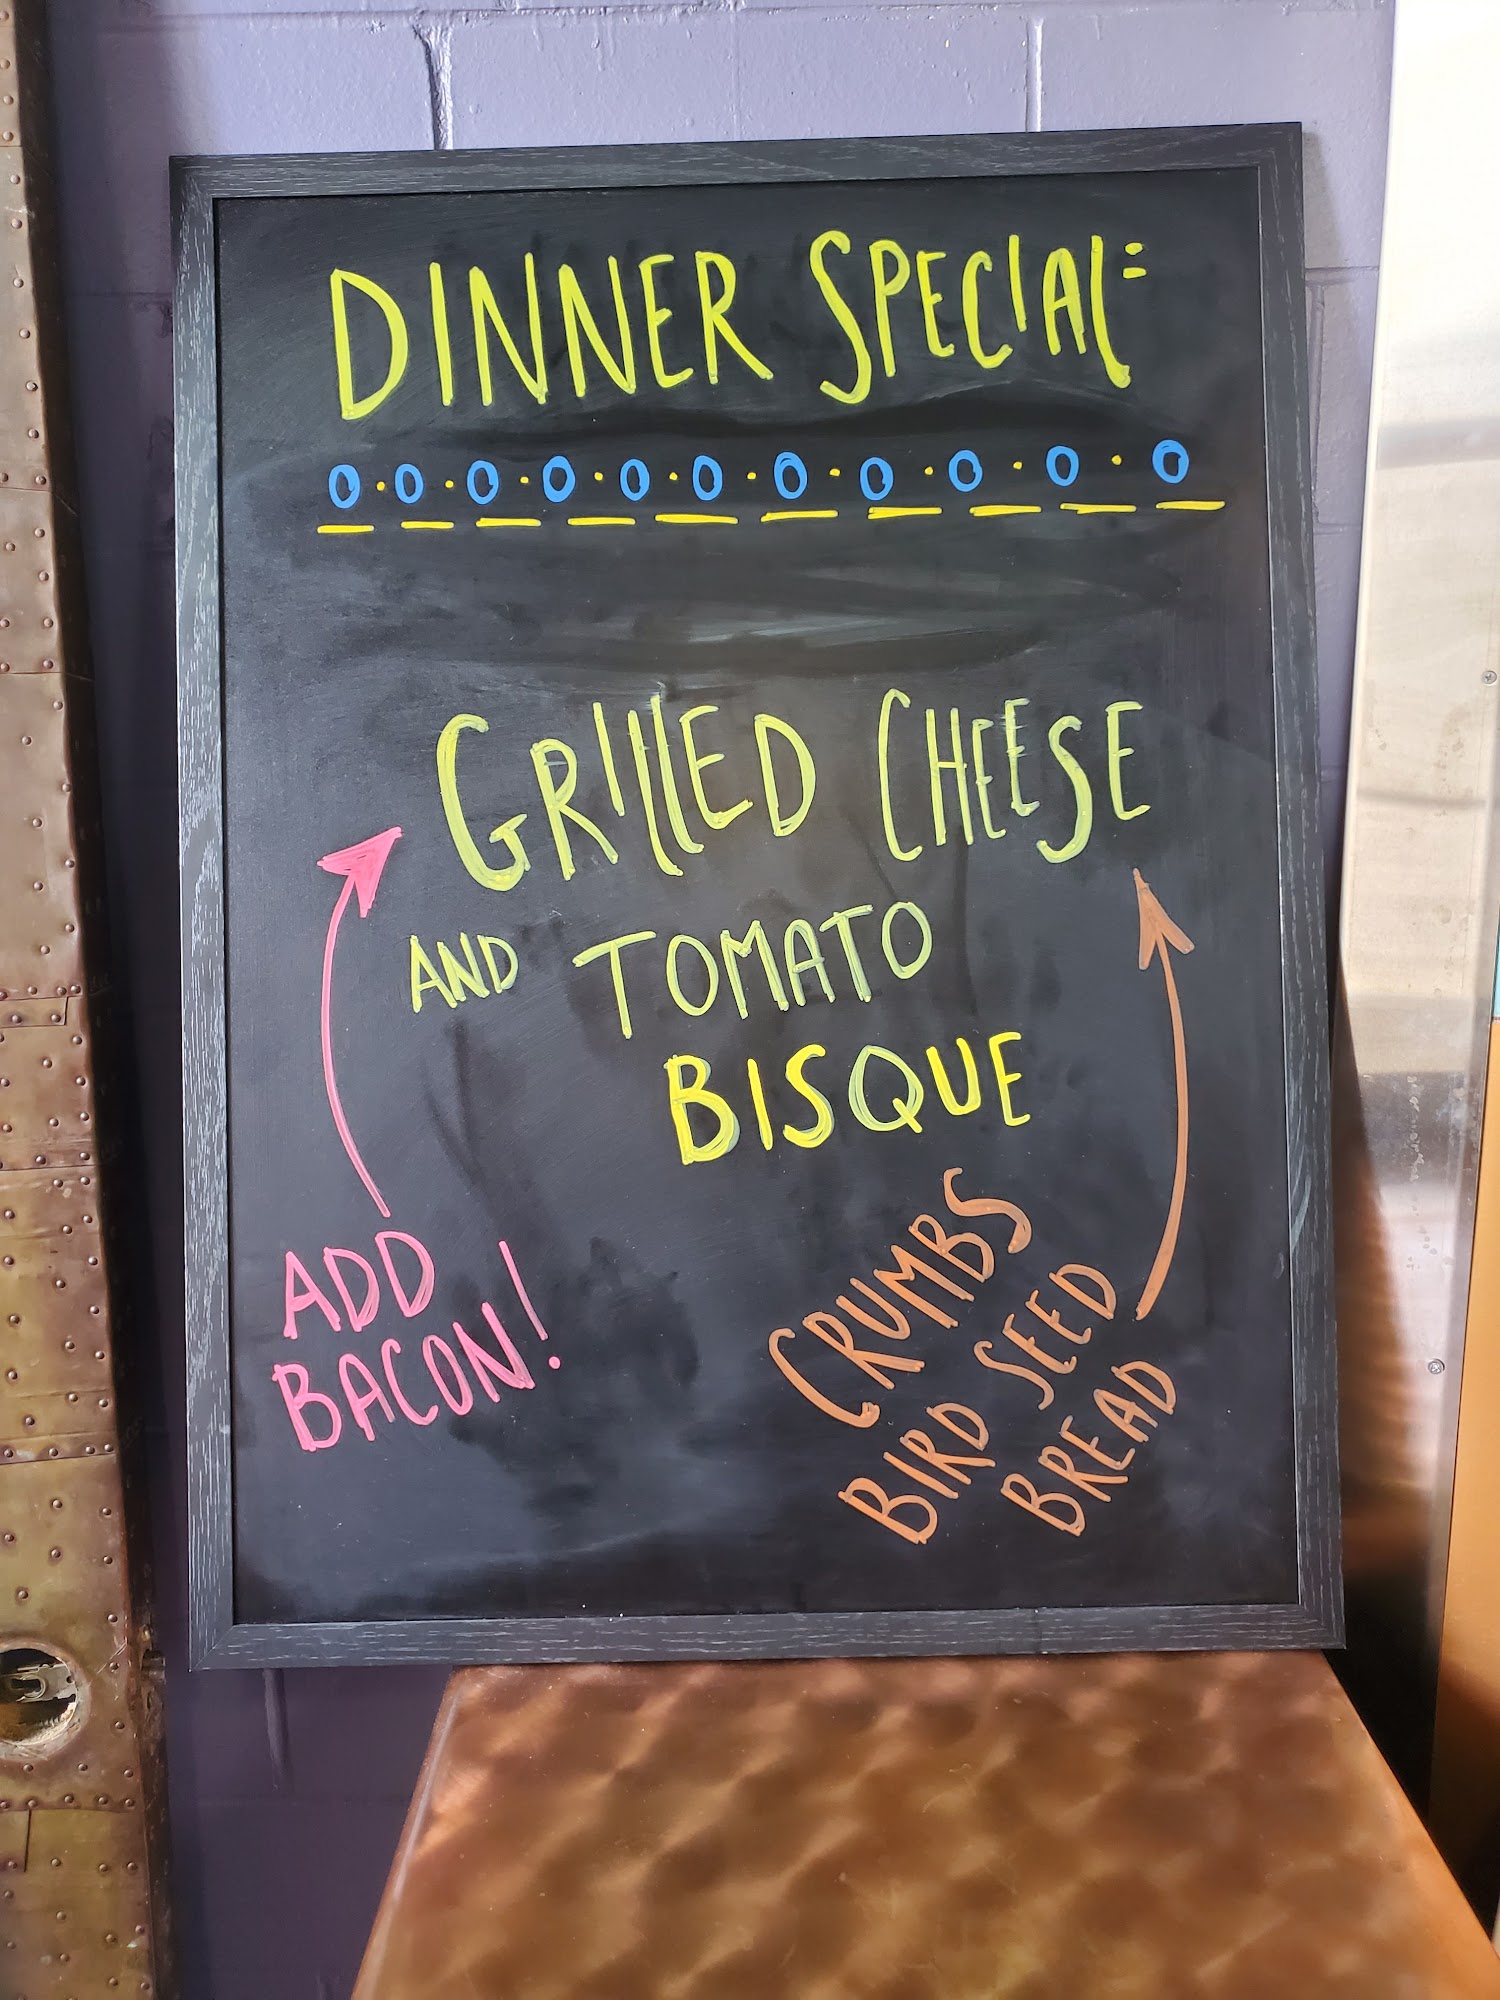 DINNER SPECIAL:
GRILLED CHEESE
AND TOMATO
BISQUE
ADD
BACON!
CRUMBS
BIRD SEED
BREAD